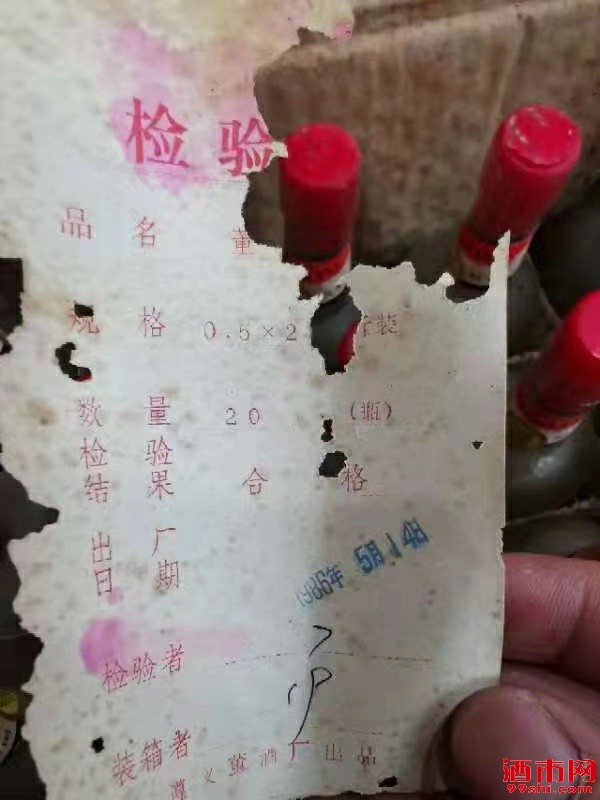 检验
品名 董
规格 0.5×2 装
数量 20 (瓶)
检验
结果 合格
出厂
日期 1986年5月14日
检验者
装箱者
遵义董酒厂出品
酒市网
99shi.com